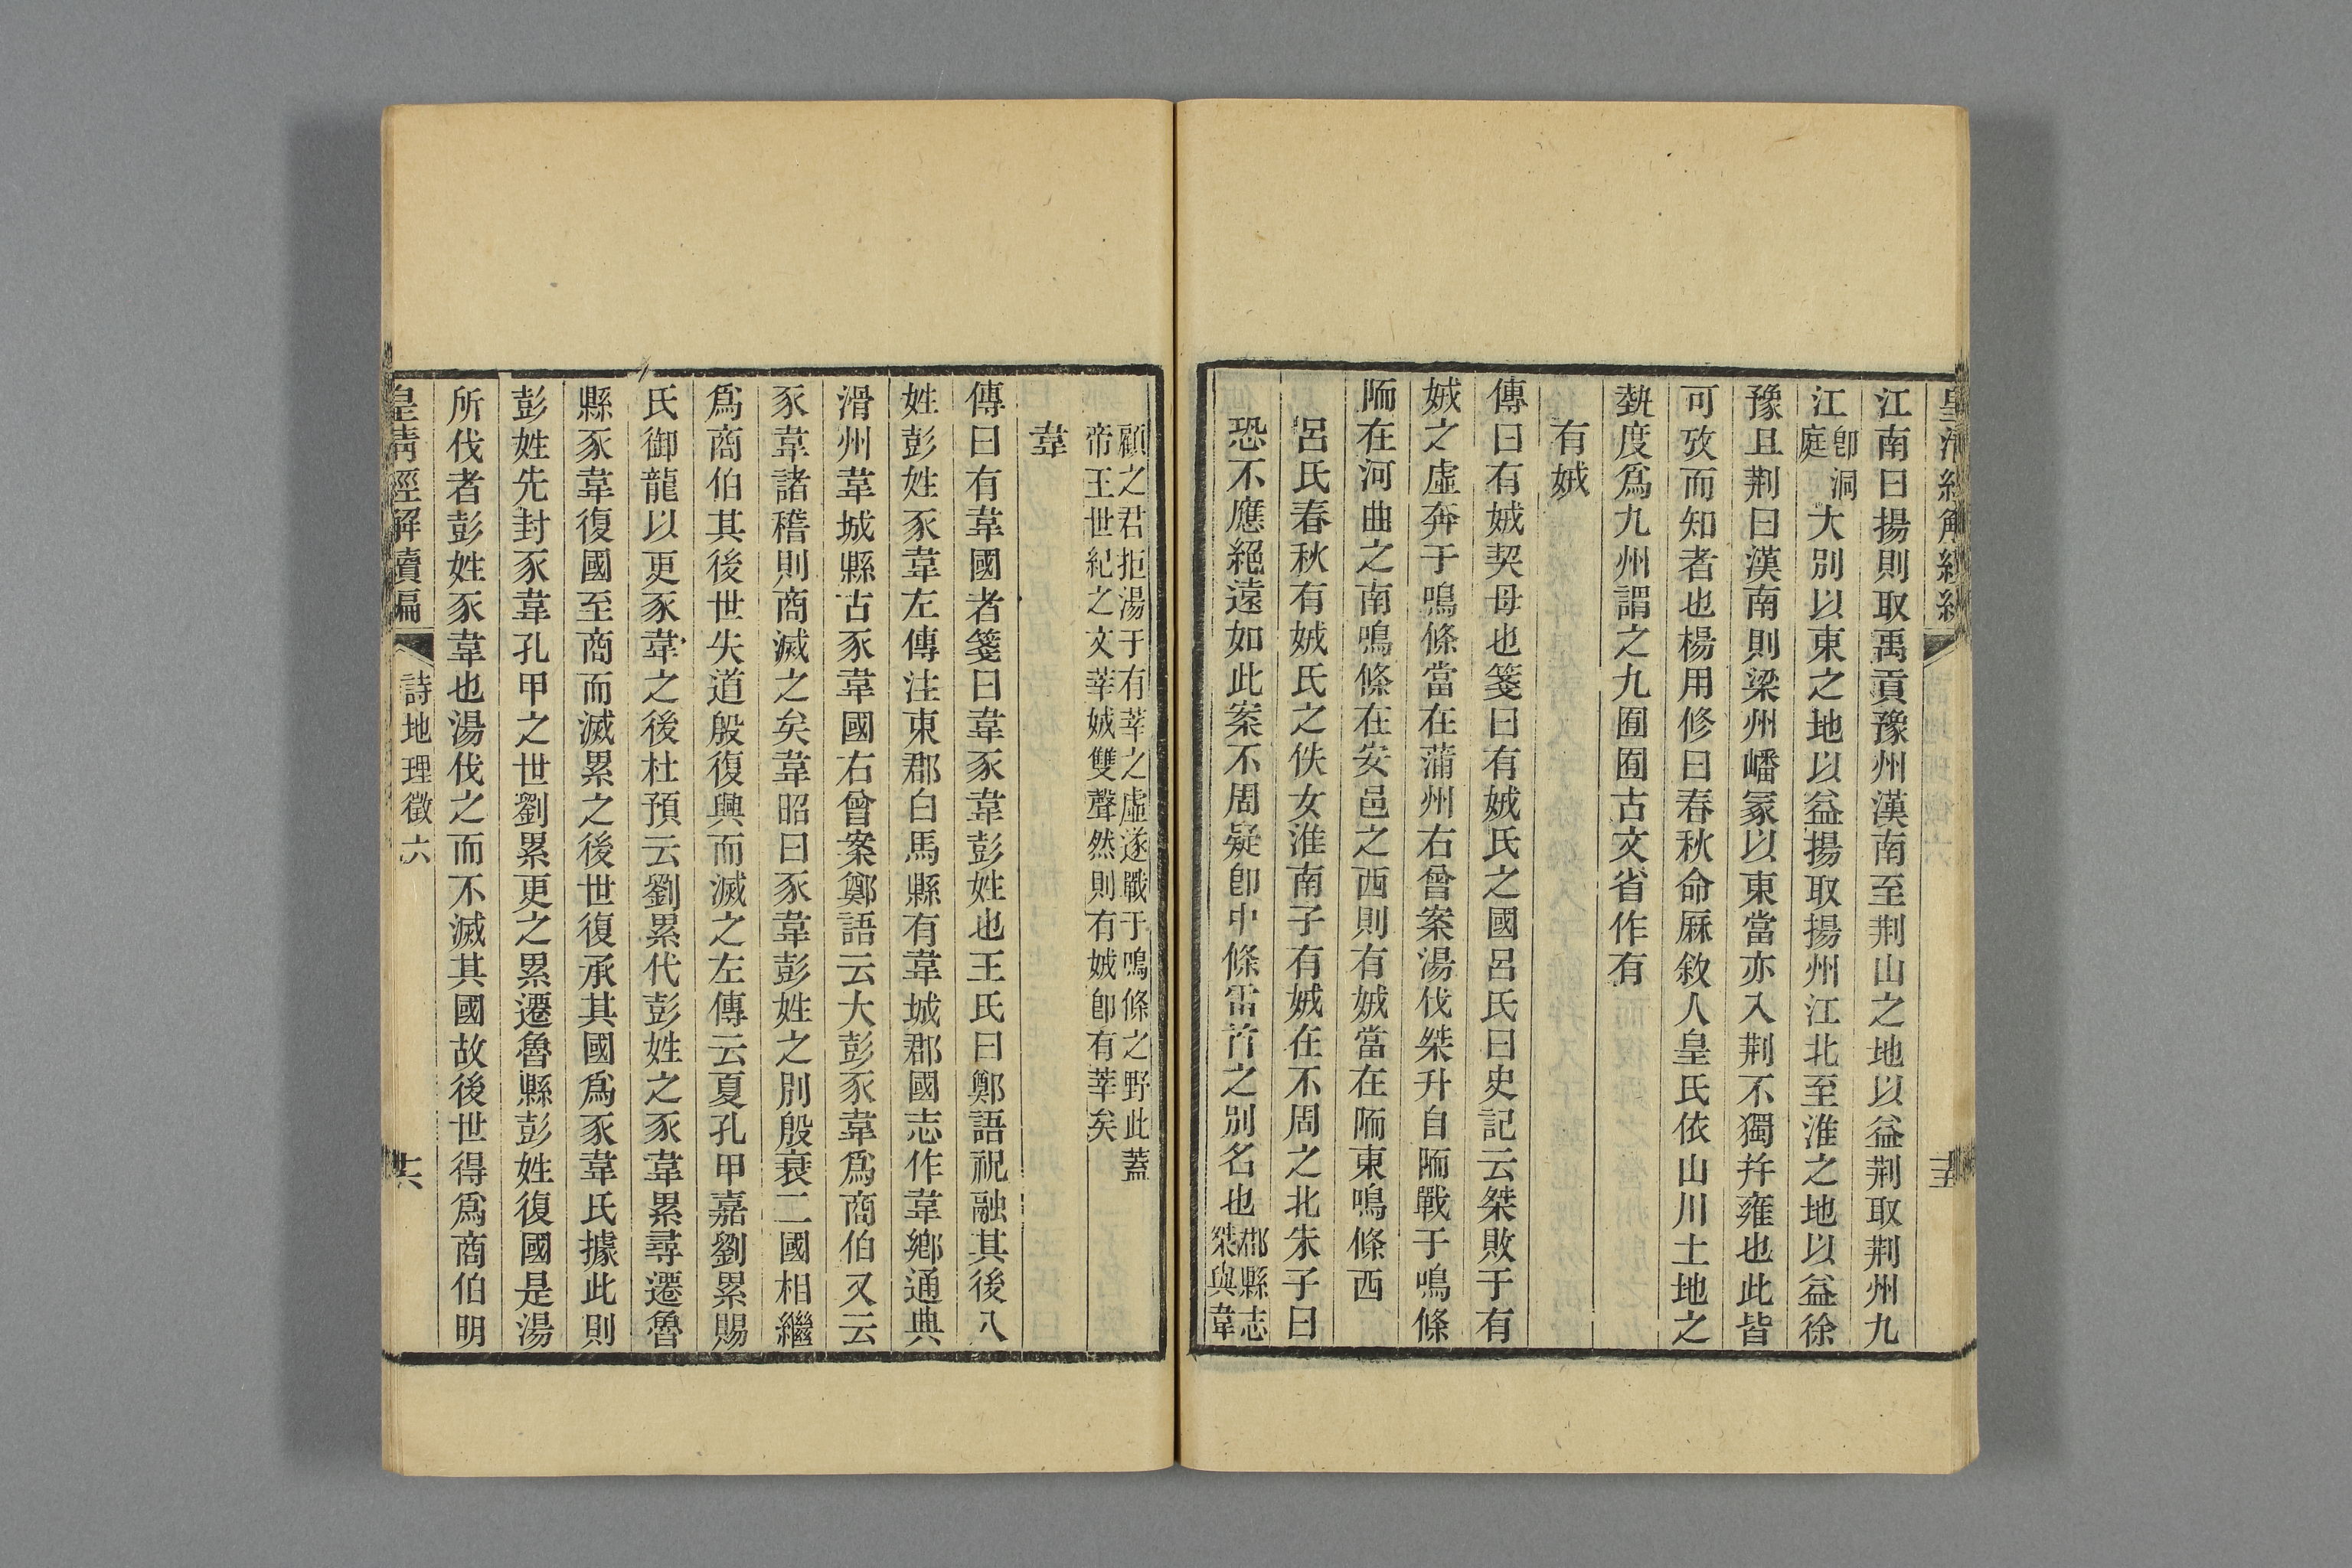 江南曰揚則取禹貢豫州漢南至荆山之地以益荆取荆州九
江卽洞庭大別以東之地以益揚取揚州江北至淮之地以益徐
豫且荆曰漢南則梁州嶓冢以東當亦入荆不獨幷雍也此皆
可攷而知者也楊用修曰春秋命厤敘人皇氏依山川土地之
埶度爲九州謂之九囿囿古文省作有
有娀
傳曰有娀契母也箋曰有娀氏之國呂氏曰史記云桀敗于有
娀之虛奔于鳴條當在蒲州右曾案湯伐桀升自陑戰于鳴條
陑在河曲之南鳴條在安邑之西則有娀當在陑東鳴條西
呂氏春秋有娀氏之佚女淮南子有娀在不周之北朱子曰
恐不應絕遠如此案不周疑卽中條雷首之別名也郡縣志桀與韋
顧之君拒湯于有莘之虛遂戰于鳴條之野此蓋
帝王世紀之文莘娀雙聲然則有娀卽有莘矣
韋
傳曰有韋國者箋曰韋豕韋彭姓也王氏曰鄭語祝融其後八
姓彭姓豕韋左傳注東郡白馬縣有韋城郡國志作韋鄉通典
滑州韋城縣古豕韋國右曾案鄭語云大彭豕韋爲商伯又云
豕韋諸稽則商滅之矣韋昭曰豕韋彭姓之別殷衰二國相繼
爲商伯其後世失道殷復興而滅之左傳云夏孔甲嘉劉累賜
氏御龍以更豕韋之後杜預云劉累代彭姓之豕韋累尋遷魯
縣豕韋復國至商而滅累之後世復承其國爲豕韋氏據此則
彭姓先封豕韋孔甲之世劉累更之累遷魯縣彭姓復國是湯
所伐者彭姓豕韋也湯伐之而不滅其國故後世得爲商伯明
皇清經解續編
詩地理徵六